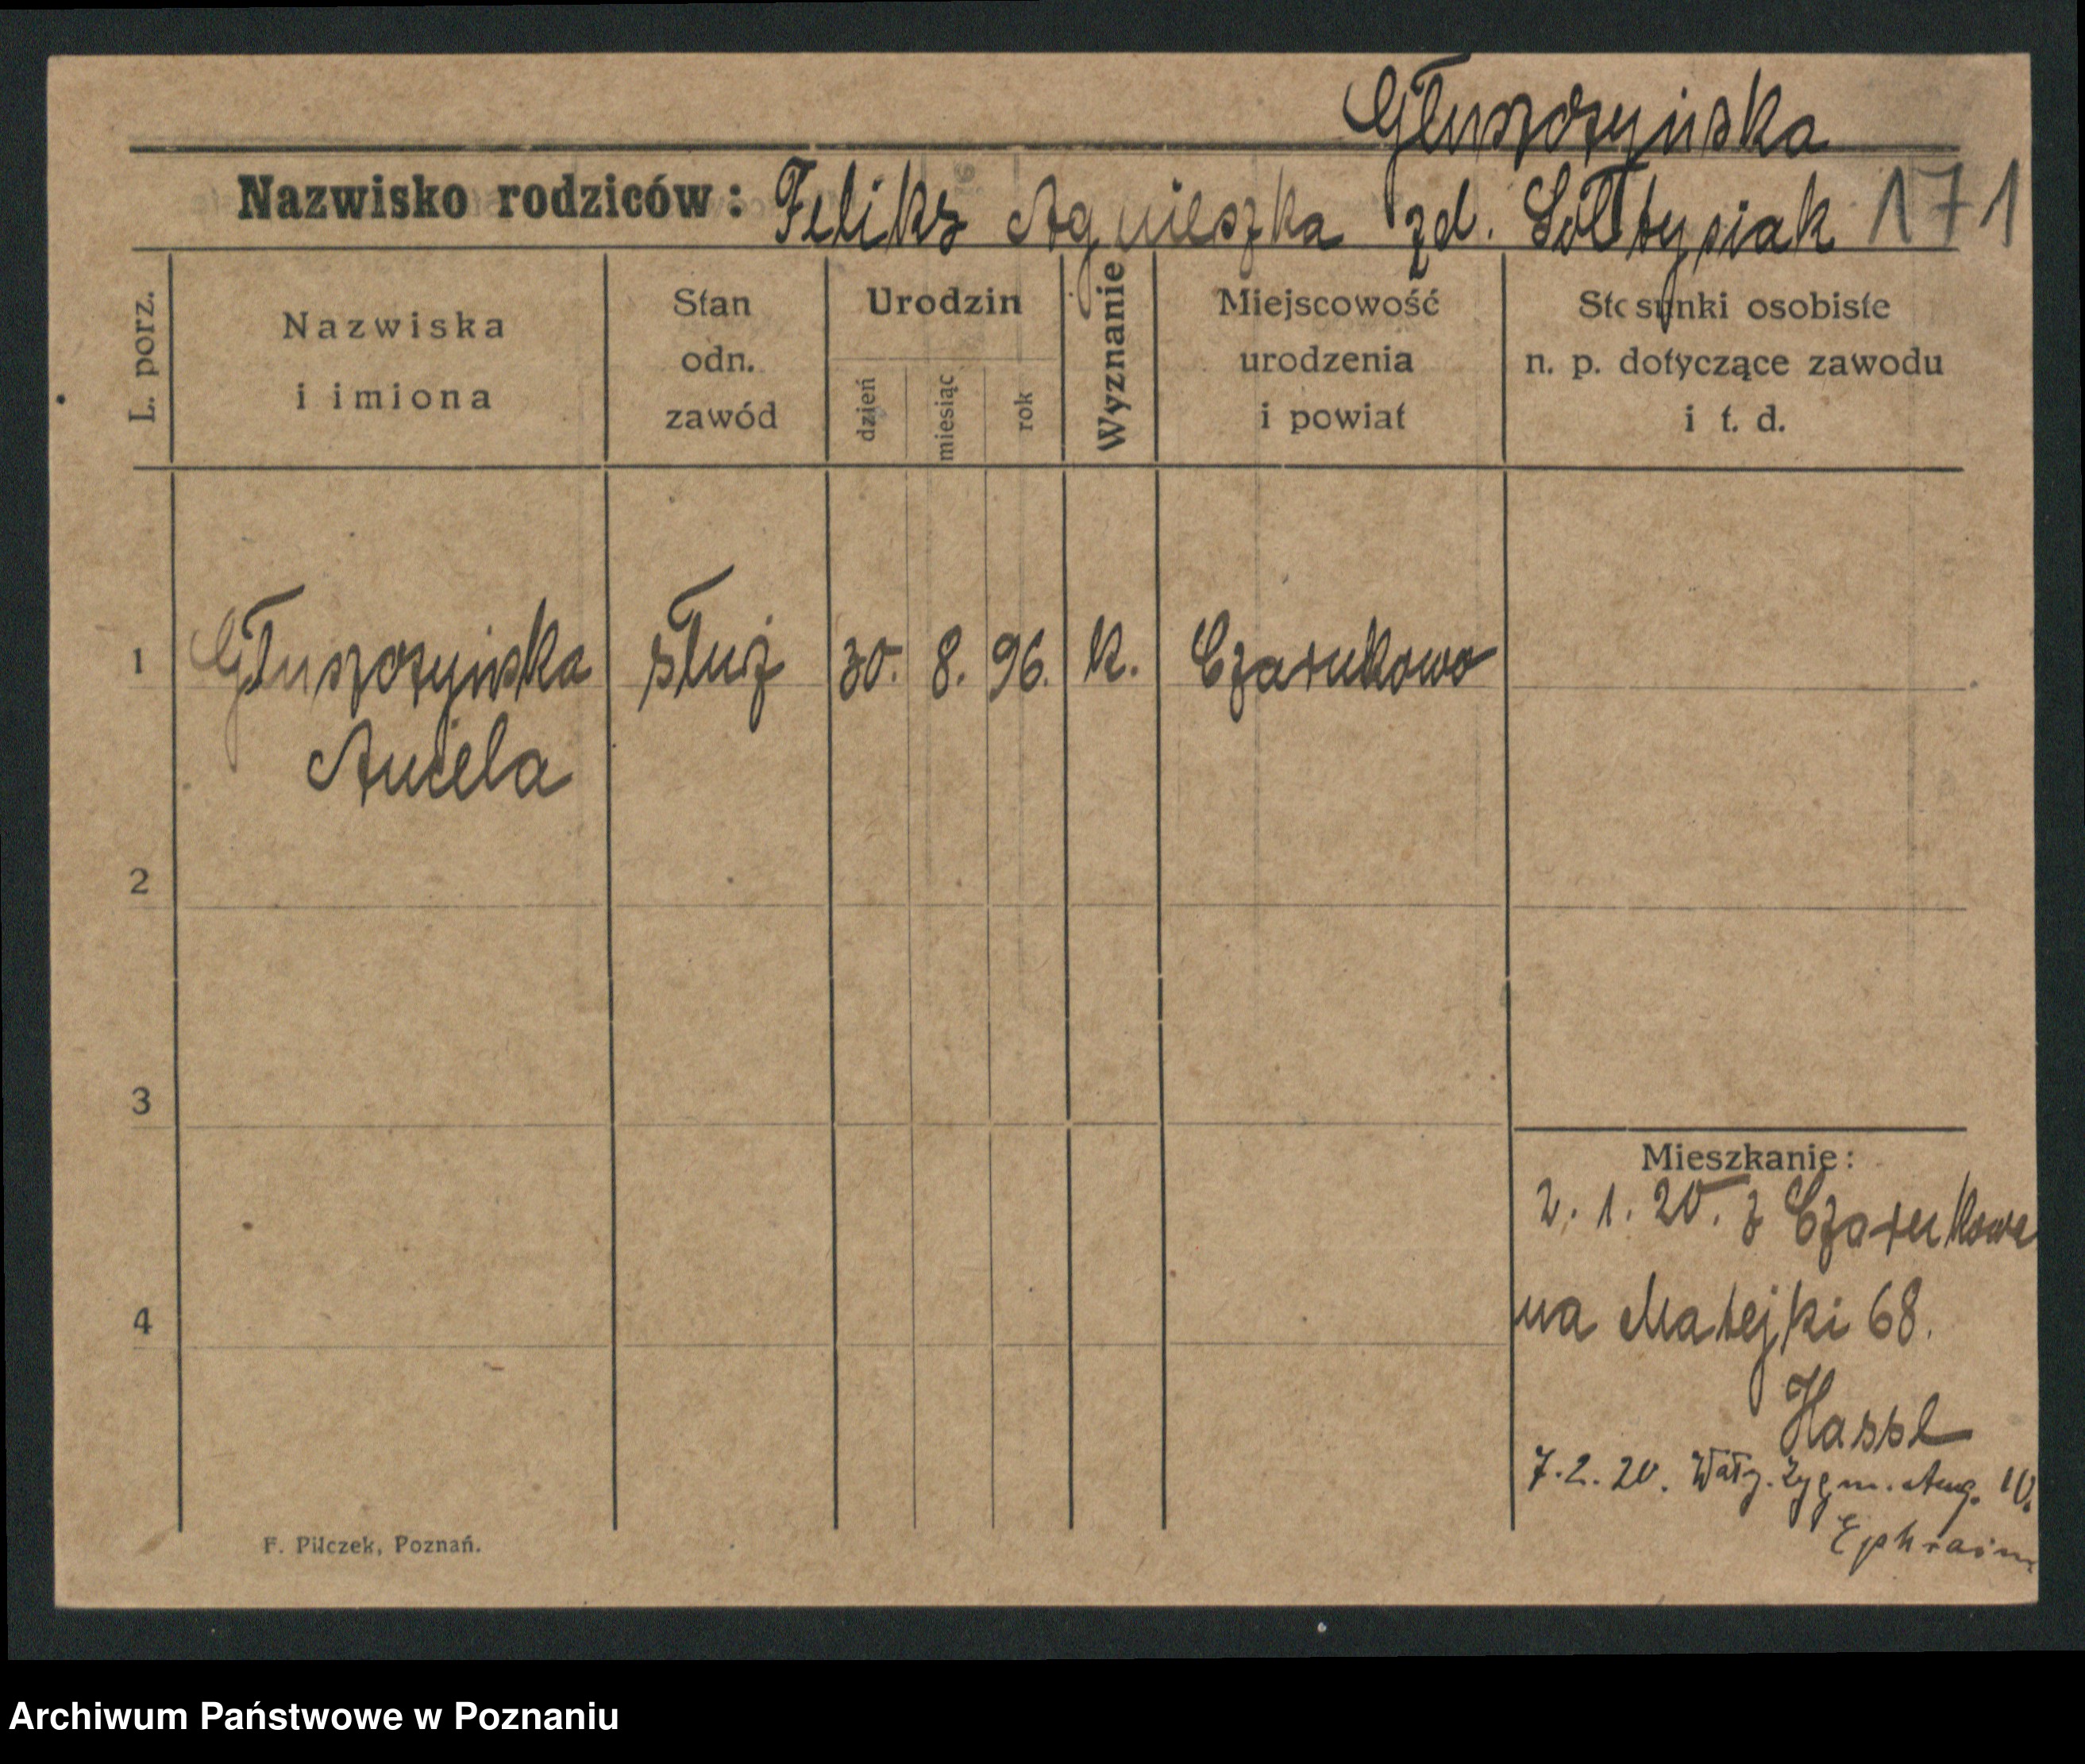 Głuszczyńska
Nazwisko rodziców: Feliks Agnieszka zd. Sołtysiak 171
L. porz.
Nazwiska
i imiona
Stan
odn.
zawód
Urodzin
dzień
miesiąc
rok
Wyznanie
Miejscowość
urodzenia
i powiat
Stosunki osobiste
n. p. dotyczące zawodu
i t. d.
1 Głuszczyńska służ 30. 8. 96. k. Czarnkowo
Aniela
2
3
4
Mieszkanie:
2. 1. 20. z Czarnkowa
na Matejki 68.
Hassl
7. 2. 20. Wały. Zygm. Aug. 10.
Ephraim
F. Pilczek, Poznań.
Archiwum Państwowe w Poznaniu